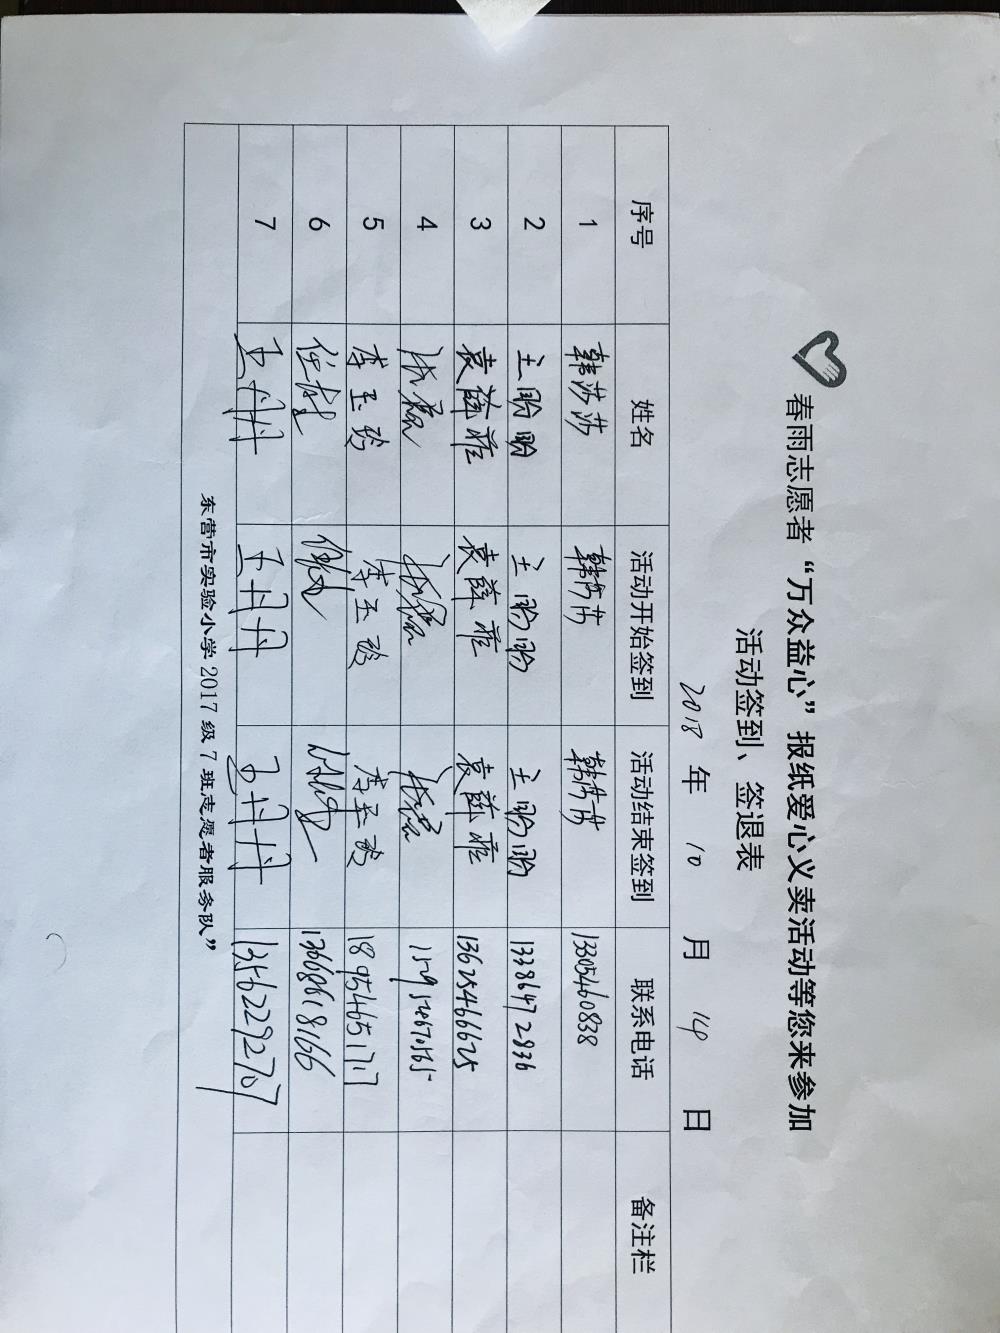 春雨志愿者“万众益心”报纸爱心义卖活动等您来参加
活动签到、签退表
2018 年 10 月 14 日
序号 姓名 活动开始签到 活动结束签到 联系电话 备注栏
1 韩莎莎 韩莎莎 韩莎莎 13305460838
2 王盼盼 王盼盼 王盼盼 13386472936
3 袁薛雅 袁薛雅 袁薛雅 13625466625
4
5 李玉玲 李玉玲 李玉玲 18954651717
6 13668618166
7 王丹丹 王丹丹 王丹丹 13562292707
东营市实验小学2017级7班志愿者服务队”